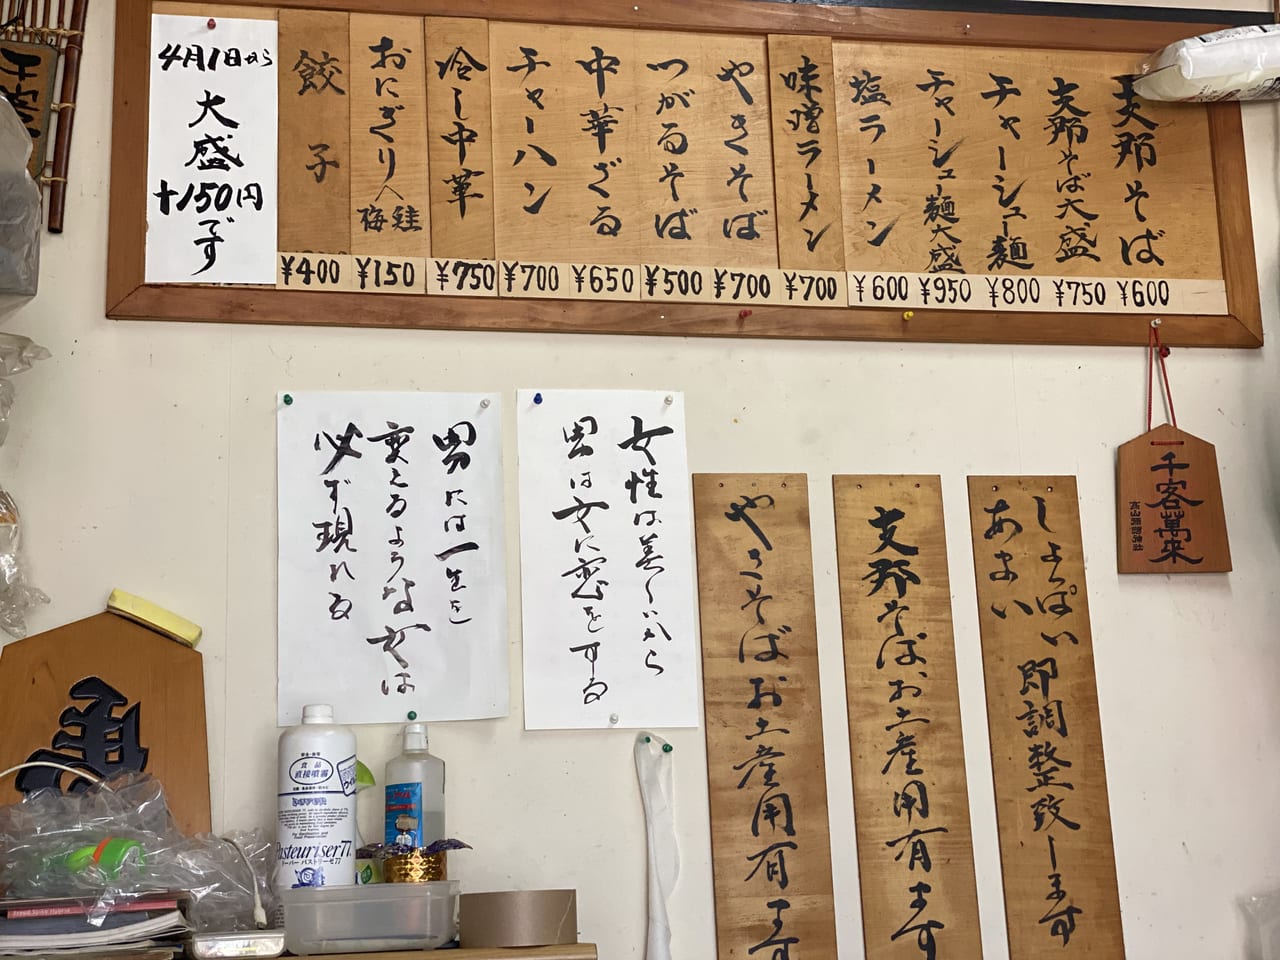 支那そば
¥600
支那そば大盛
¥750
チャーシュー麺
¥800
チャーシュー麺大盛
¥950
塩ラーメン
¥600
味噌ラーメン
¥700
やきそば
¥700
つがるそば
¥500
中華ざる
¥650
チャーハン
¥700
冷し中華
¥750
おにぎり
鮭
梅
¥150
餃子
¥400
4月1日から
大盛
+150円
です
千客萬来
しょっぱい
あまい
即調整致します
支那そばお土産用有ます
やきそばお土産用有ます
女性は美しいから
男は女に恋をする
男には一生を
変えるような女は
必ず現れる
食品
直接噴霧
Pasteuriser77
ドーバー パストリーゼ77